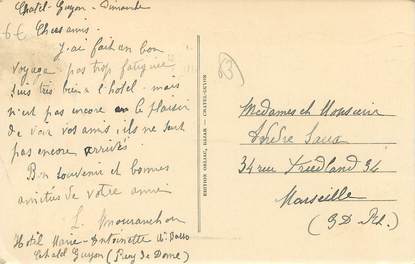 Chatel-Guyon - Dimanche
6€ Chers amis.
J'ai fait un bon
voyage pas trop fatiguée
suis très bien à l'hôtel - mais
n'ai pas encore eu le plaisir
de voir vos amis, ils ne sont
pas encore arrivés.
Bon souvenir et bonnes
amitiés de votre amie
L.
Hotel Marie-Antoinette
Chatel Guyon (Puy de Dome)
63
EDITION ORLIAC, BAZAR - CHATEL-GUYON
Mesdames et Monsieur
34 rue Friedland 34
Marseille
(B D Rh.)